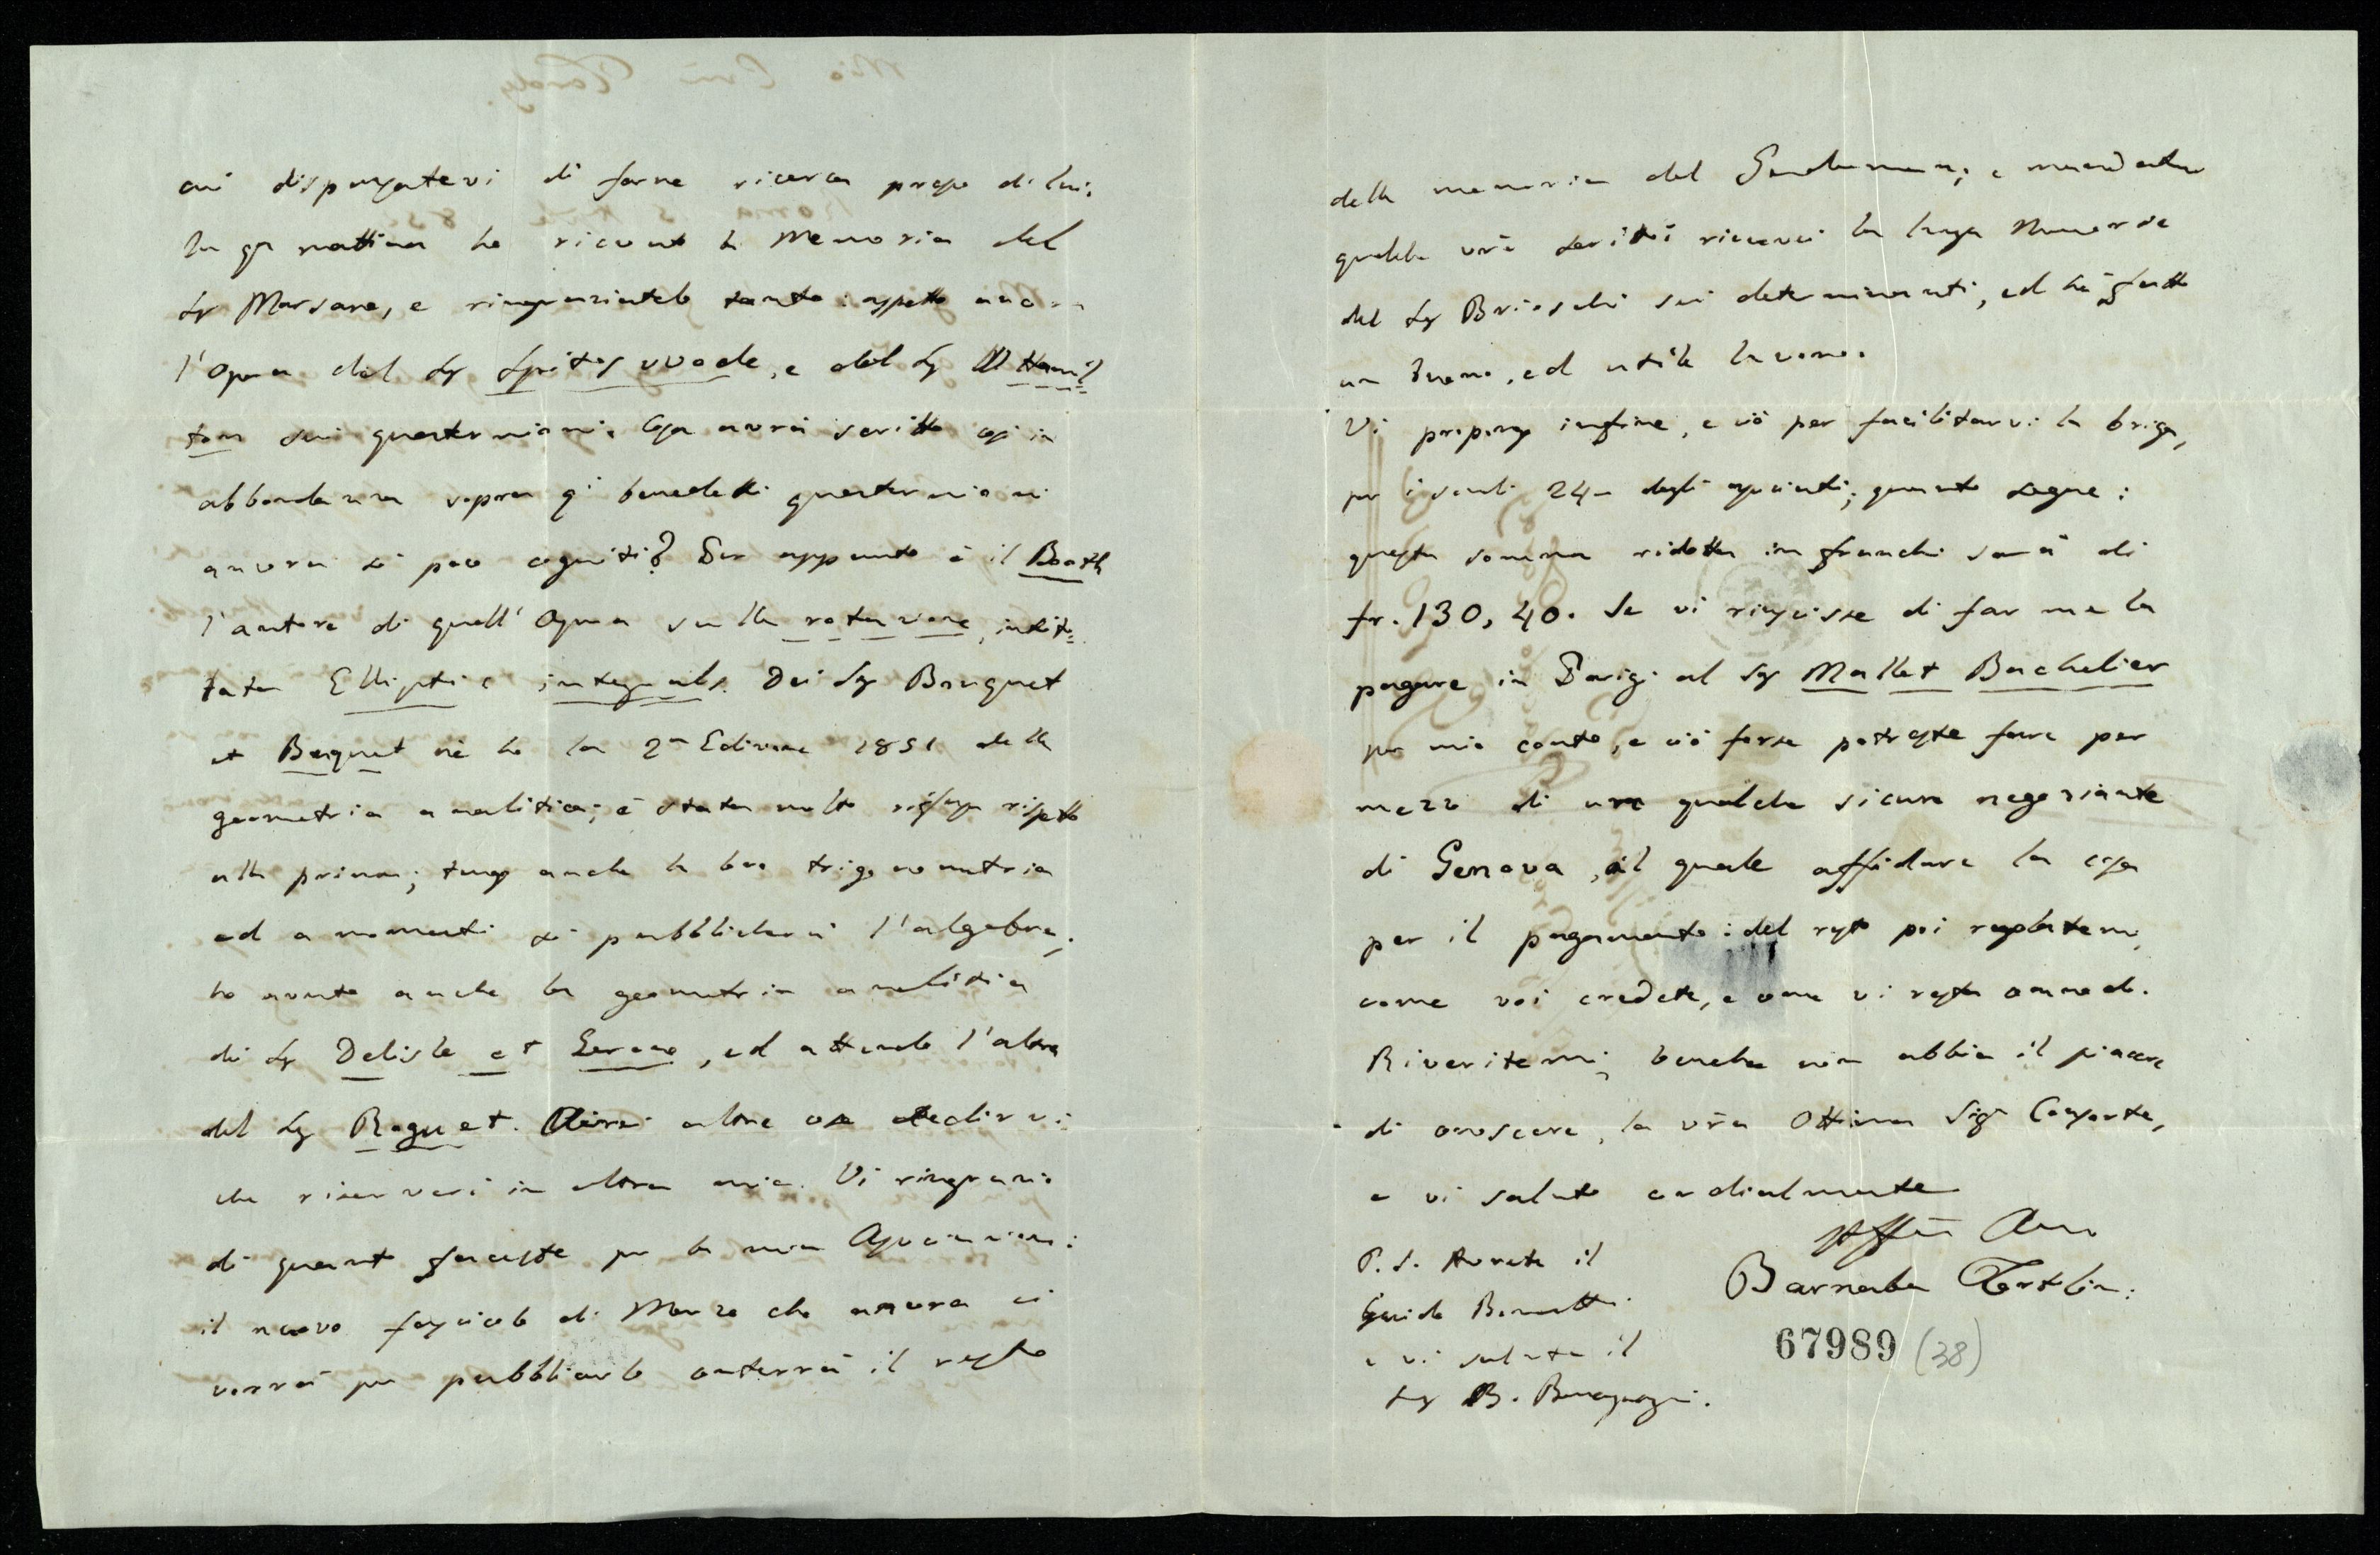 cui dispensatevi di farne ricerca presso di lui.
In qta mattina ho ricevuto la Memoria del
Sig Marsano, e ringraziatelo tanto: aspetto ancora
l'Opera del Sig Spitiswoode, e del Sig Hamil=
ton sui quaternioni. Cosa avrà scritto così in
abbondanza sopra qi benedetti quaternioni
ancora sì poco cogniti? Per appunto è il Booth
l'autore di quell'Opera sulla rotazione, intito=
lata Elliptic integrals. Dei Sig Bouquet
et Briquet ne ho la 2a Edizione 1851 della
geometria analitica; è stata molto rifusa rispetto
alla prima; tengo anche la loro trigonometria
ed a momenti si pubblicherà l'algebra;
ho avuto anche la geometria analitica
di Sig Delisle et Gerono, ed attendo l'altra
del Sig Roguet. Avrei altre cose a dirvi
che riserverò in altra mia. Vi ringrazio
di quanto faceste per la mia Associazione:
il nuovo fascicolo di Marzo che ancora ci
vorrà per pubblicarlo conterrà il resto
della memoria del Genderman; e mandate
qualche vrò scritto ricevei la lunga Memoria
del Sig Brioschi sui determinanti, ed ha fatto
un buono, ed utile lavoro.
Vi propongo infine, e ciò per facilitarvi la briga,
per i scudi 24 degli associati; quanto segue:
questa somma ridotta in franchi sarà di
fr. 130, 40. Se vi riuscisse di farmela
pagare in Parigi al Sig Mallet Bachelier
per mio conto, e ciò forse potreste fare per
mezzo di qualche sicuro negoziante
di Genova, al quale affidare la cosa
per il pagamento: del resto poi regolatevi
come voi credete, e come vi resta comodo.
Riveritemi, benchè non abbia il piacere
di conoscere, la vrā Ottima Sigra Consorte,
e vi saluto cordialmente
Affmo Amo
Barnaba Tortolini.
P. S. Avrete il
Guido Bonatti
e vi saluta il
Sig B. Boncompagni.
67989 (38)